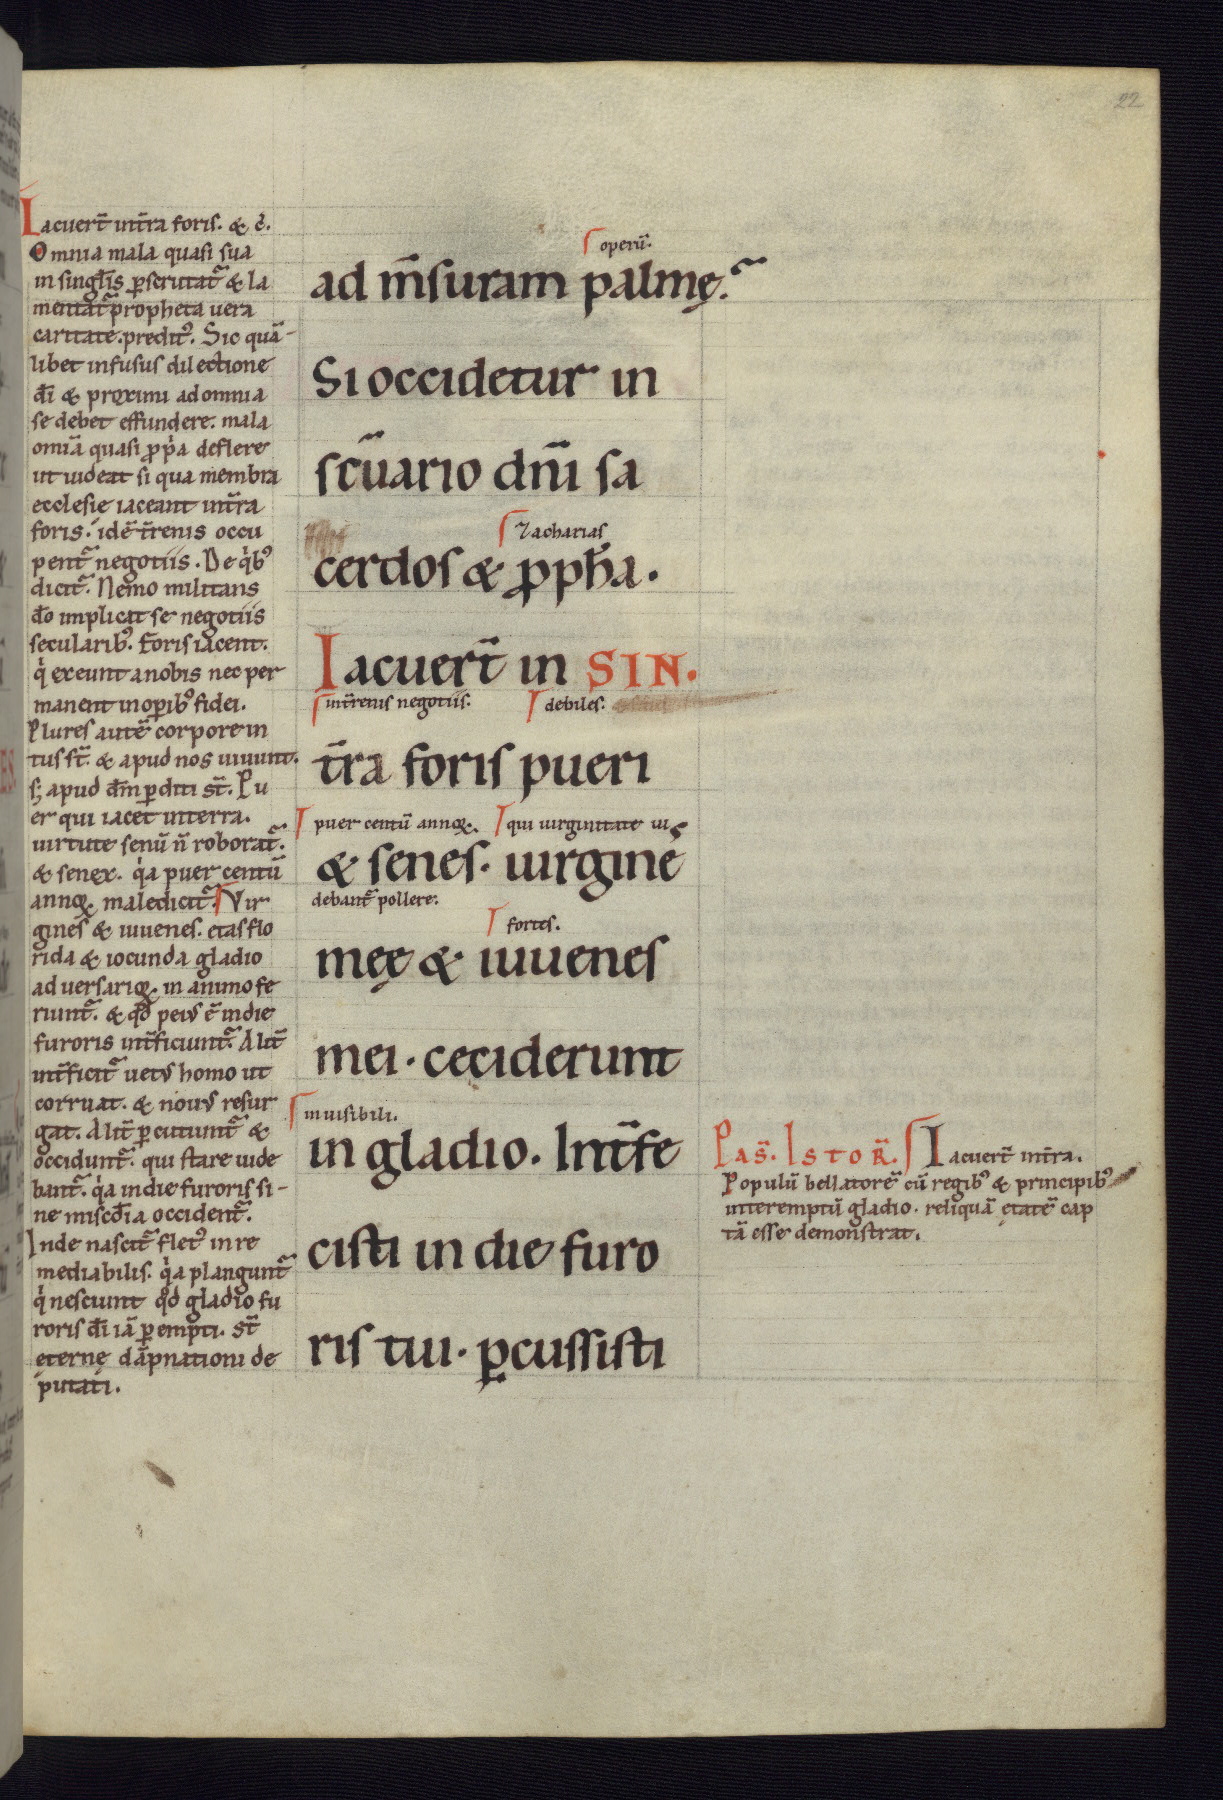 22
Iacuer̄t int̄ra foris. & c̄.
Omnia mala quasi sua
in singl̄is p̱scrutat᷑ & la
mentat᷑ propheta uera
caritate. predit᷒. Sic quā-
libet infusus dilectione
dī & proximi ad omnia
se debet effundere. mala
om̄ia quasi ꝓpͥa deflere
ut uideat si qua membra
ecclesie iaceant int̄ra
foris. idē t̄renis occu
pent᷑ negotiis. De qͥb᷒
dicit᷑. Nemo militans
dō implicat se negotiis
secularib᷒. Foris iacent.
qͥ exeunt a nobis nec per
manent in oꝑib᷒ fidei.
Plures autē corpore in
tus st̄. & apud nos uiuunt.
s; apud dm̄ ꝑditi st̄. Pu
er qui iacet in terra.
uirtute senū n̄ roborat᷑.
& senex. qͥa puer centū
annoꝝ maledicit᷑. Vir
gines & iuuenes. etas flo
rida & iocunda gladio
aduersarioꝝ in animo fe
riunt᷑. & qd̄ peiꝰ ē in die
furoris int̄ficiunt᷑. Alit̄
int̄ficit᷑ uetꝰ homo ut
corruat. & nouꝰ resur
gat. Alit̄ ꝑcutiunt᷑ &
occidunt᷑. qui stare uide
bant᷑. qͥa in die furoris si-
ne misc̄dia occident᷑.
Inde nascit᷑ flet᷒ inre
mediabilis. qͥa plangunt᷑
qͥ nesciunt qd̄ gladio fu
roris dī iā ꝑempti. st̄
eternę dāpnationi de
putati.
operū.
ad m̄suram palmę.
Si occidetur in
sc̄uario dn̄i sa
Zacharias
cerdos & ꝓph̄a.
Iacuer̄t in SIN.
in t̄renis negotiis. debiles.
t̄ra foris pueri
puer centū annoꝝ. qui uirginitate ui
& senes. uirgine
debant᷑ pollere.
fortes.
męę & iuuenes
mei. ceciderunt
inuisibili.
in gladio. Int̄fe
cisti in die furo
ris tui. ꝑcussisti
Pas̄. Istor̄. Iacuer̄t int̄ra.
Populū bellatorē cū regib᷒ & principib᷒
interemptū gladio. reliquā etatē cap
tā esse demonstrat.